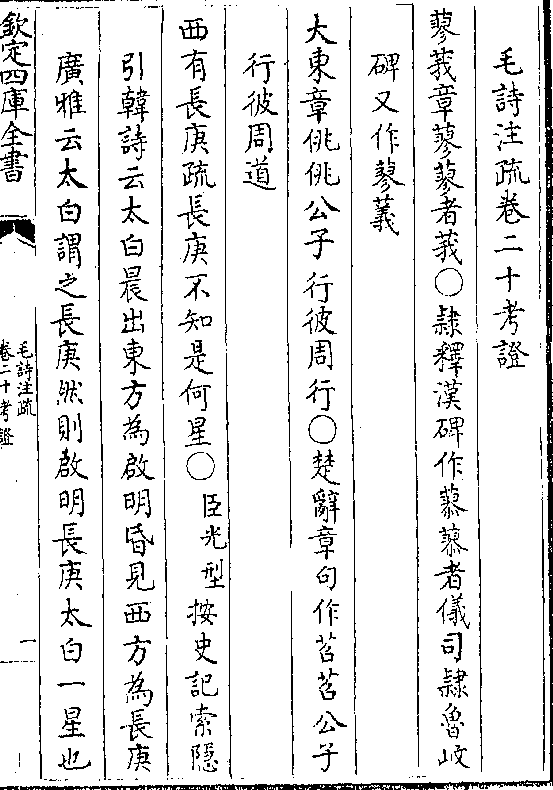 毛詩注疏卷二十考證
蓼莪章蓼蓼者莪○隸釋漢碑作蓼蓼者儀司隸魯峻
碑又作蓼義
大東章佻佻公子行彼周行○楚辭章句作苕苕公子
行彼周道
西有長庚疏長庚不知是何星○臣光型按史記索隱
引韓詩云太白晨出東方為啟明昏見西方為長庚
廣雅云太白謂之長庚然則啟明長庚太白一星也
欽定四庫全書
毛詩注疏
卷二十考證
一